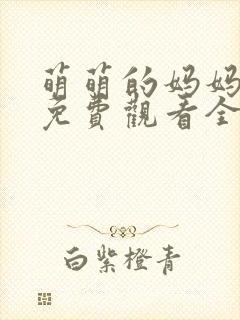 萌萌的妈妈
免費觀看全
白紫橙青